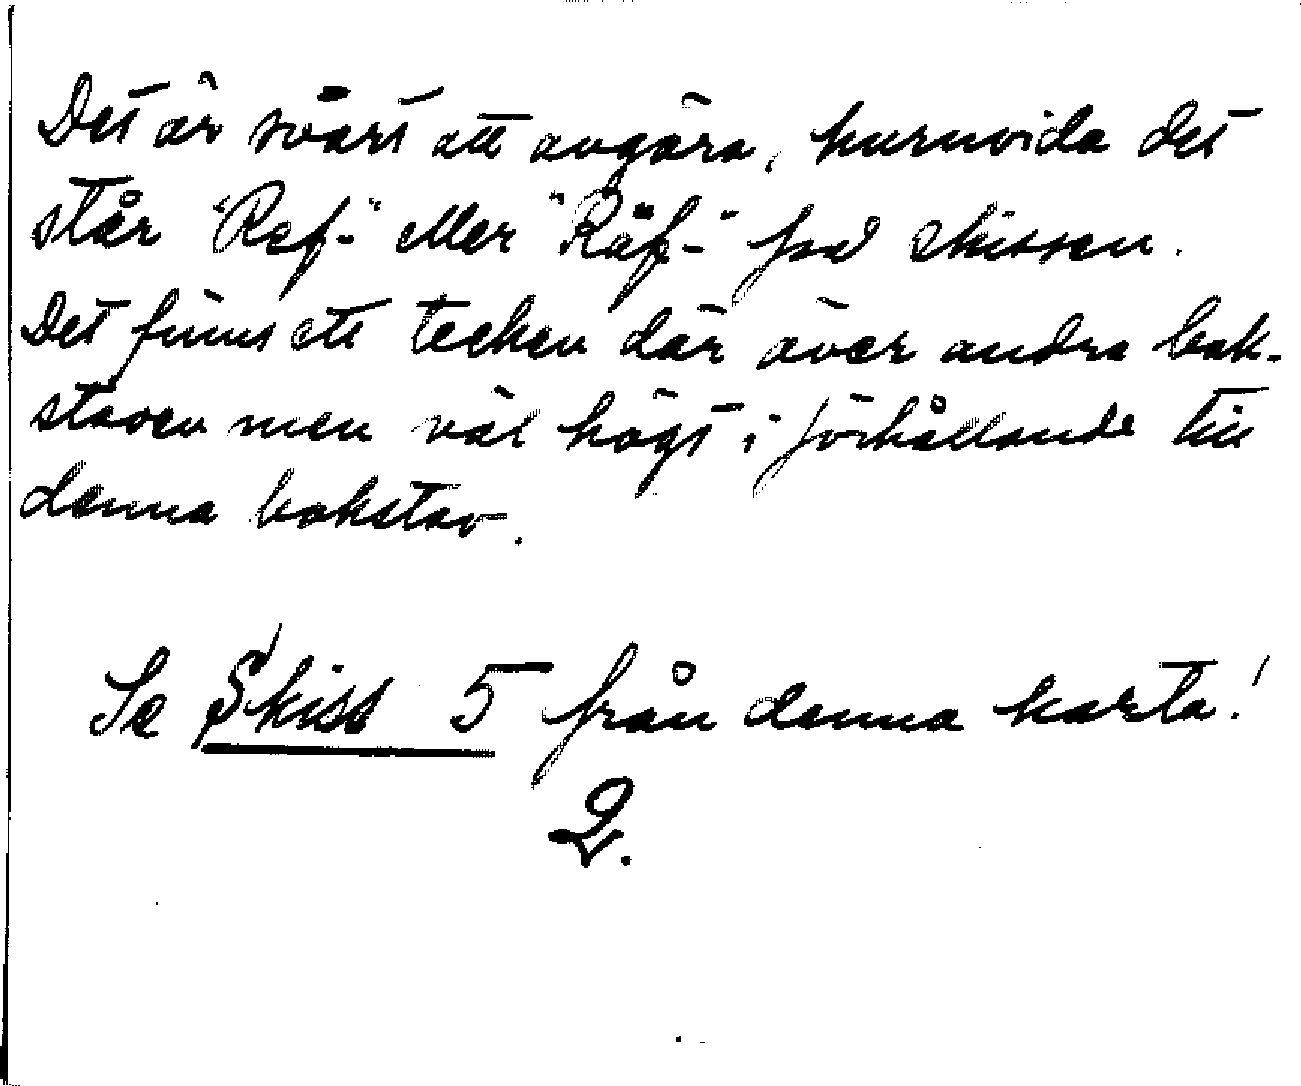 Det är svårt att avgöra, huruvida det
står "Ref-" eller "Räf-" på skissen.
Det finns ett tecken där över andra bok-
staven men väl högt i förhållande till
denna bokstav.
Se Skiss 5 från denna karta!
2.